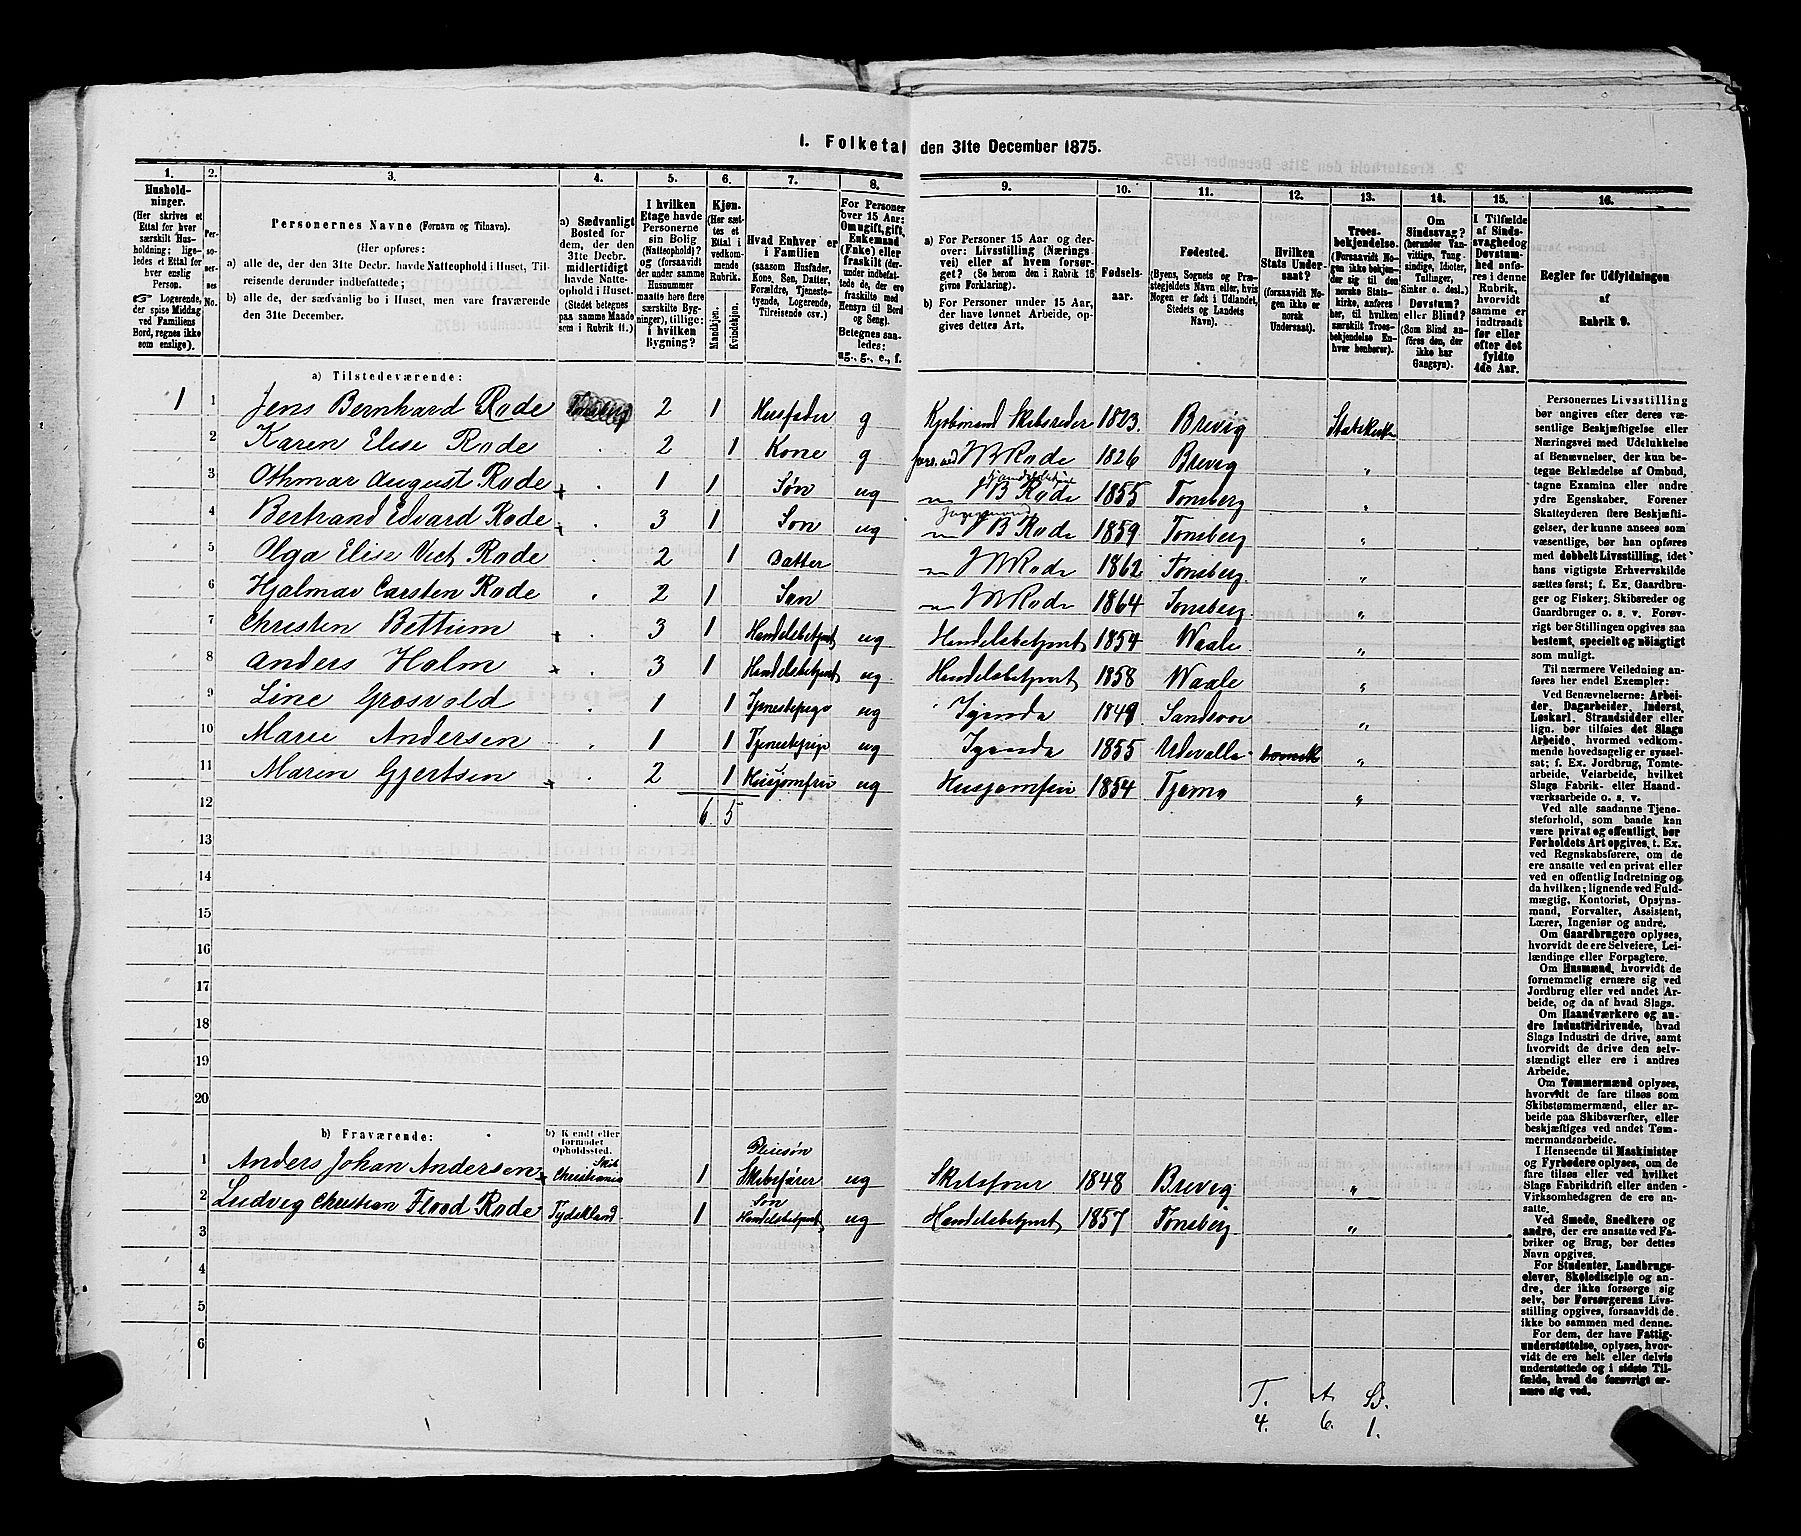 I. Folketal den 31te December 1875.
1. 2. 3. 4. 5. 6. 7. 8. 9. 10. 11. 12. 13. 14. 15. 16.
Hushold-
ninger.
(Her skrives et
Ettal for hver
særskilt Hus-
holdning; lige-
ledes et Ettal for
hver enslig
Person.
☞ Logerende,
der spise Middag
ved Familiens
Bord, regnes ikke
som enslige).
Per-
so-
ner-
nes
No.
Personernes Navne (Fornavn og Tilnavn).
(Her opføres:
a) alle de, der den 31te Decbr. havde Natteophold i Huset, Til-
reisende derunder indbefattede;
b) alle de, der sædvanlig bo i Huset, men vare fraværende
den 31te December.
a) Sædvanligt
Bosted for
dem, der den
31te Decbr.
midlertidigt
havde Natte-
ophold i Huset.
(Stedet betegnes
paa samme Maade
som i Rubrik 11.)
I hvilken
Etage havde
Personerne
sin Bolig
(Natteophold)?
og (forsaavidt
der under samme
Husnummer
maatte høre flere
særskilte Byg-
ninger), tillige:
i hvilken
Bygning?
Kjøn.
(Her sæt-
tes et
Ettal i
vedkom-
mende
Rubrik.
Mandkjøn.
Kvindekjøn.
Hvad Enhver er
i Familien
(saasom Husfader,
Kone, Søn, Datter,
Forældre, Tjeneste-
tyende, Logerende,
Tilreisende osv.)
For Personer
over 15 Aar:
Om ugift, gift,
Enkemand
(Enke) eller
fraskilt (der-
under indbefat-
tede de, der ere
fraskilte med
Hensyn til Bord
og Seng).
Betegnes saa-
ledes:
ug., g., e., f.
a) For Personer 15 Aar og der-
over: Livsstilling (Nærings-
vei) eller af hvem forsør-
get? (Se herom den i Rubrik 16
givne Forklaring).
b) For Personer under 15 Aar,
der have lønnet Arbeide, op-
gives dettes Art.
Fødsels-
aar.
Fødested.
(Byens, Sognets og Præ-
stegjeldets Navn eller, hvis
Nogen er født i Udlandet,
Stedets og Landets
Navn).
Hvilken
Stats Under-
saat?
(forsaavidt No-
gen ikke er
norsk
Undersaat).
Troes-
bekjendelse.
(Forsaavidt No-
gen ikke bekjen-
der sig til den
norske Stats-
kirke, anføres
her, til hvilken
særskilt Troes-
bekjendelse En-
hver henhører).
Om
Sindssvag?
(herunder Van-
vittige, Tung-
sindige, Idioter,
Tullinger,
Sinker o. desl.)
Døvstum?
eller Blind?
(Som Blind an-
føres den, der
ikke har
Gangsyn).
I Tilfælde
af Sinds-
svaghed og
Døvstum-
hed anfø-
res i denne
Rubrik,
hvorvidt
samme er
indtraadt
før eller
efter det
fyldte
4de Aar.
Regler for Udfyldningen
af
Rubrik 9.
a) Tilstedeværende:
1 1 Jens Bernhard Rode 2 1 Husfader g Kjøbmand Skibsreder 1823. Brevig Statskirke
2 Karen Elise Rode 2 1 Kone g fors. ved J B Rode 1826 Brevig „
3 Othmar August Rode + 1 1 Søn ug J B Rode 1855 Tønsberg „
4 Bertrand Edvard Rode + 3 1 Søn ug J B Rode 1859 Tønsberg „
5 Olga Elise Vict Rode 2 1 Datter J B Rode 1862 Tønsberg „
6 Hjalmar Carsten Rode 2 1 Søn J B Rode 1864 Tønsberg „
7 Christen Bettum + 3 1 Handelsbetjent ug Handelsbetjent 1854 Waale „
8 Anders Holm + 3 1 Handelsbetjent ug Handelsbetjent 1858 Waale „
9 Line Grosvold 1 1 Tjenestepige ug Tyende 1849 „
10 Marie Andersen 1 1 Tjenestepige ug Tyende 1855 Udevalla svensk „
11 Maren Gjertsen + 2 1 Husjomfru ug Husjomfru 1854 Tjømø „
12 6. 5
13
14
15
16
17
18
19
20
b) Fraværende:
b) Kjendt eller
formodet
Opholdssted.
1 Anders Johan Andersen + Skib Christiania 1 Pleiesøn Skibsfører ug Skibsfører 1848 Brevig „
2 Ludvig Christian Flood Rode Tydskland 1 Søn Handelsbetjent ug Handelsbetjent 1857 Tønsberg „
3
4
5
6
Personernes Livsstilling
bør angives efter deres væ-
sentlige Beskjæftigelse eller
Næringsvei med Udelukkelse
af Benævnelser, der kun be-
tegne Beklædelse af Ombud,
tagne Examina eller andre
ydre Egenskaber. Forener
Skatteyderen flere Beskjæfti-
gelser, der kunne ansees som
væsentlige, bør han opføres
med dobbelt Livsstilling, idet
hans vigtigste Erhvervskilde
sættes først; f. Ex. Gaardbru-
ger og Fisker; Skibsreder og
Gaardbruger o. s. v. Forøv-
rigt bør Stillingen opgives saa
bestemt, specielt og nøiagtigt
som muligt.
Til nærmere Veiledning an-
føres her endel Exempler:
Ved Benævnelserne: Arbei-
der, Dagarbeider, Inderst,
Løskarl, Strandsidder eller
lign. bør tilføies det Slags
Arbeide, hvormed vedkom-
mende hovedsagelig er syssel-
sat; f. Ex. Jordbrug, Tomte-
arbeide, Veiarbeide, hvilket
Slags Fabrik- eller Haand-
værksarbeide o. s. v.
Ved alle saadanne Tjene-
steforhold, som baade kan
være privat og offentligt, bør
Forholdets Art opgives, t. Ex.
ved Regnskabsførere, om de
ere ansatte ved en privat eller
ved en offentlig Indretning og
da hvilken; lignende ved Fuld-
mægtig, Kontorist, Opsyns-
mand, Forvalter, Assistent,
Lærer, Ingeniør og andre.
Om Gaardbrugere oplyses,
hvorvidt de ere Selveiere, Lei-
lændinge eller Forpagtere.
Om Husmænd, hvorvidt de
fornemmelig ernære sig ved
Jordbrug eller ved andet Ar-
beide, og da af hvad Slags.
Om Haandværkere og an-
dre Industridrivende, hvad
Slags Industri de drive, samt
hvorvidt de drive den selv-
stændigt eller ere i andres
Arbeide.
Om Tømmermænd oplyses,
hvorvidt de fare tilsøs som
Skibstømmermænd, eller ar-
beide paa Skibsværfter, eller
beskjæftiges ved andet Tøm-
mermandsarbeide.
I Henseende til Maskinister
og Fyrbødere oplyses, om de
fare tilsøs eller ved hvilket
Slags Fabrikdrift eller anden
Virksomhedsgren de ere an-
satte.
Ved Smede, Snedkere og
andre, der ere ansatte ved Fa-
briker og Brug, bør dettes
Navn opgives.
For Studenter, Landbrugs-
elever, Skoledisciple og an-
dre, der ikke forsørge sig
selv, bør Forsørgerens Livs-
stilling opgives, forsaavidt de
ikke bo sammen med denne.
For dem, der have Fattig-
understøttelse, oplyses, hvor-
vidt de ere helt eller delvis
understøttede og i sidste Til-
fælde, hvad de forøvrigt er-
nære sig ved.
T. A.
4. 6. 1.